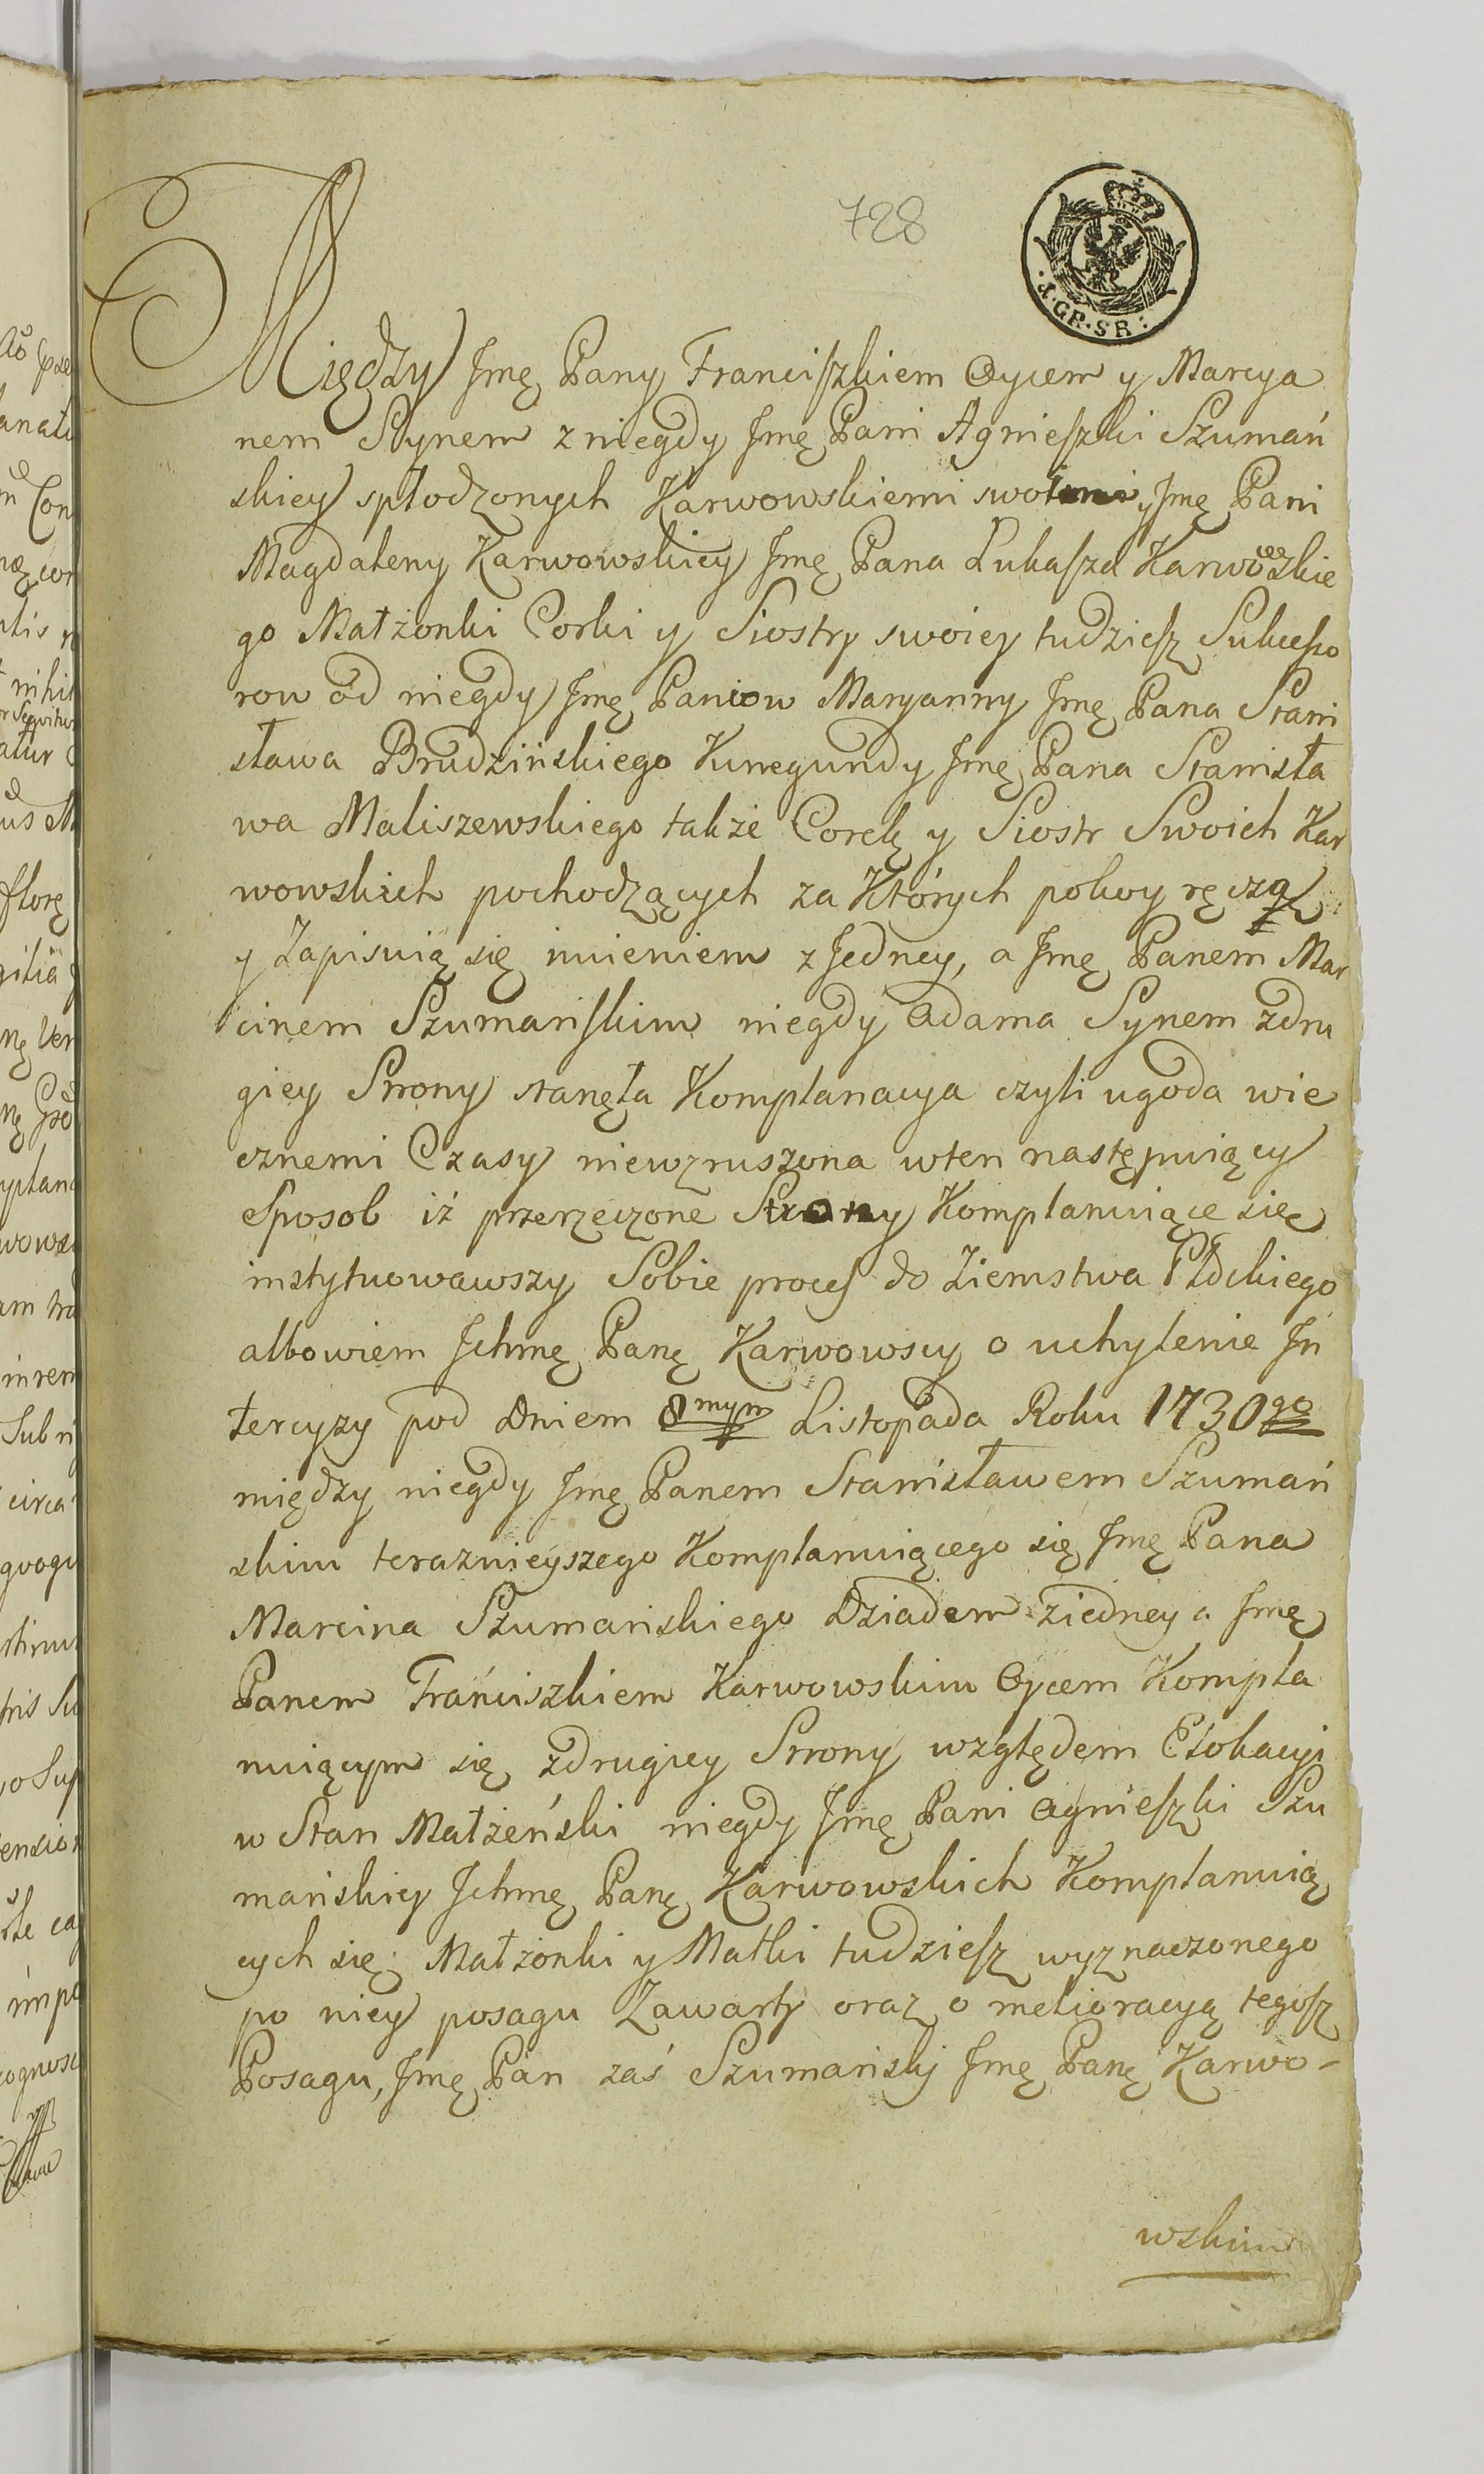 728
1.GR.SR:
Między Jmę Pany Franciſzkiem Oycem y Marcya
nem Synem z niegdy Jmę Pani Agnieſzki Szumań
skiey spłodzonych Karwowskiemi swoimi y Jmę Pani
Magdaleny Karwowskiey Jmę Pana Łukaſza Karwowskie
go Małżonki Corki y Siostry swoiey tudzieſz Sukceſso
row od niegdy Jmę Paniow Maryanny Jmę Pana Stani
sława Brudzińskiego Kunegundy Jmę Pana Stanisła
wa Maliszewskiego także Corek y Siostr Swoich Kar
wowskich pochodzących za Których pokoy ręczą
y Zapisuią się imieniem z Jedney, a Jmę Panem Mar
cinem Szumańſkim niegdy Adama Synem zdru
giey Strony stanęła Komplanacya czyli ugoda wie
cznemi Czasy niewzruszona wten następuiący
Sposob iż przerzeczone Strony Komplanuiące się
instytuowawszy Sobie proceſ do Ziemstwa Płockiego
albowiem Ichmę Panę Karwowscy o uchylenie In
tercyzy pod Dniem 8mym Listopada Roku 1730go
między niegdy Jmę Panem Stanisławem Szumań
skim teraznieyszego Komplanuiącego się Jmę Pana
Marcina Szumańskiego Dziadem ziedney a Jmę
Panem Franciszkiem Karwowskim Oycem Kompla
nuiącym się zdrugiey Strony względem Elokacyi
w Stan Małżeński niegdy Jmę Pani Agnieſzki Szu
mańskiey Ichmę Panę Karwowskich Komplanuią
cych się Małżonki y Matki tudzieſz wyznaczonego
po niey posagu Zawarty oraz o melioracyą tegoſz
Posagu, Jmę Pan zaś Szumański Jmę Panę Karwo-
wskim